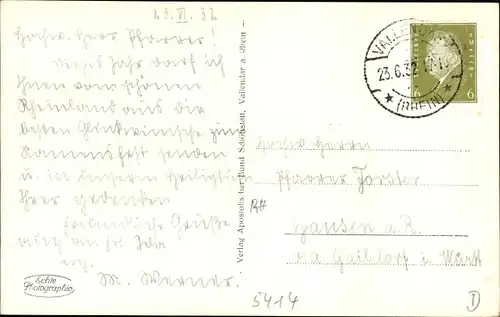 23. VI. 32
Hochw. Herr Pfarrer!
Dieses Jahr darf ich
Ihnen vom schönen
Rheinland aus die
besten Glückwünsche zum
Namensfest senden
u. in unserem Heiligtum
Ihrer gedenken
Freundliche Grüße
auch an Frl. Ida
M. Werner.
Echte
Photographie
Verlag Apostolischer Bund Schönstatt, Vallendar a. Rhein
VALLENDAR
23.6.32
(RHEIN)
6
6
Hochw. Herrn
Pfarrer Forster
Hausen a. R.
Gaildorf i. Württ
5414
D